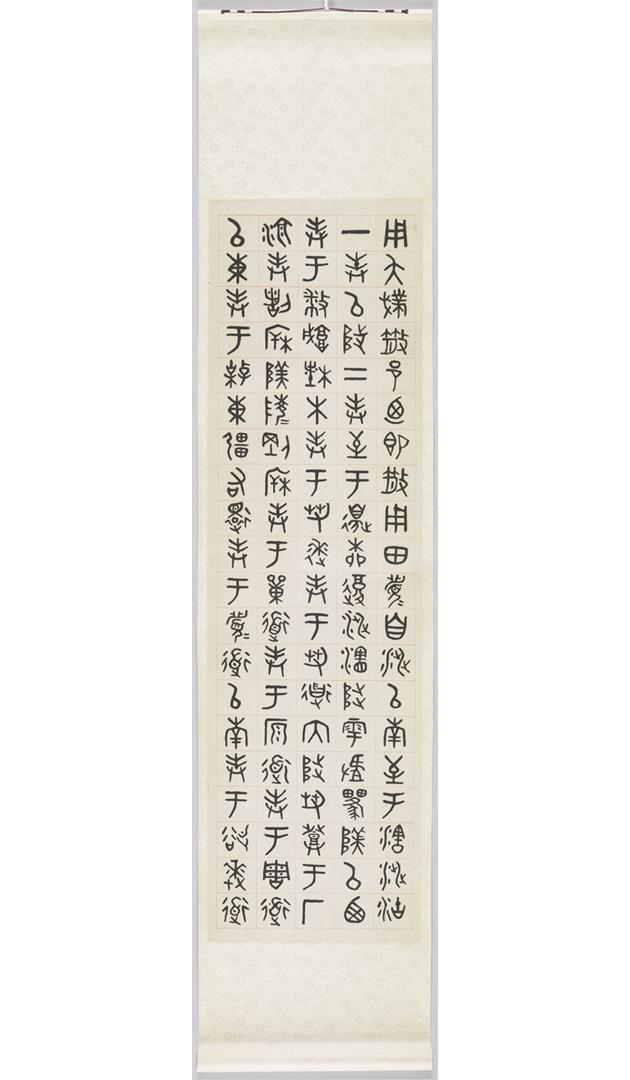 用夨撲散邑迺即散用田眉自涉以南至于涉沽
一封以陟二封至于邊柳復涉瀗陟雩陕以西
封于播城楮木封于芻逨封于芻道內陟芻登于厂
湶封諸㭰陕陵剛㭰封于單道封于原道封于周道
以東封于棹東疆右還封于眉道以南封于逨道